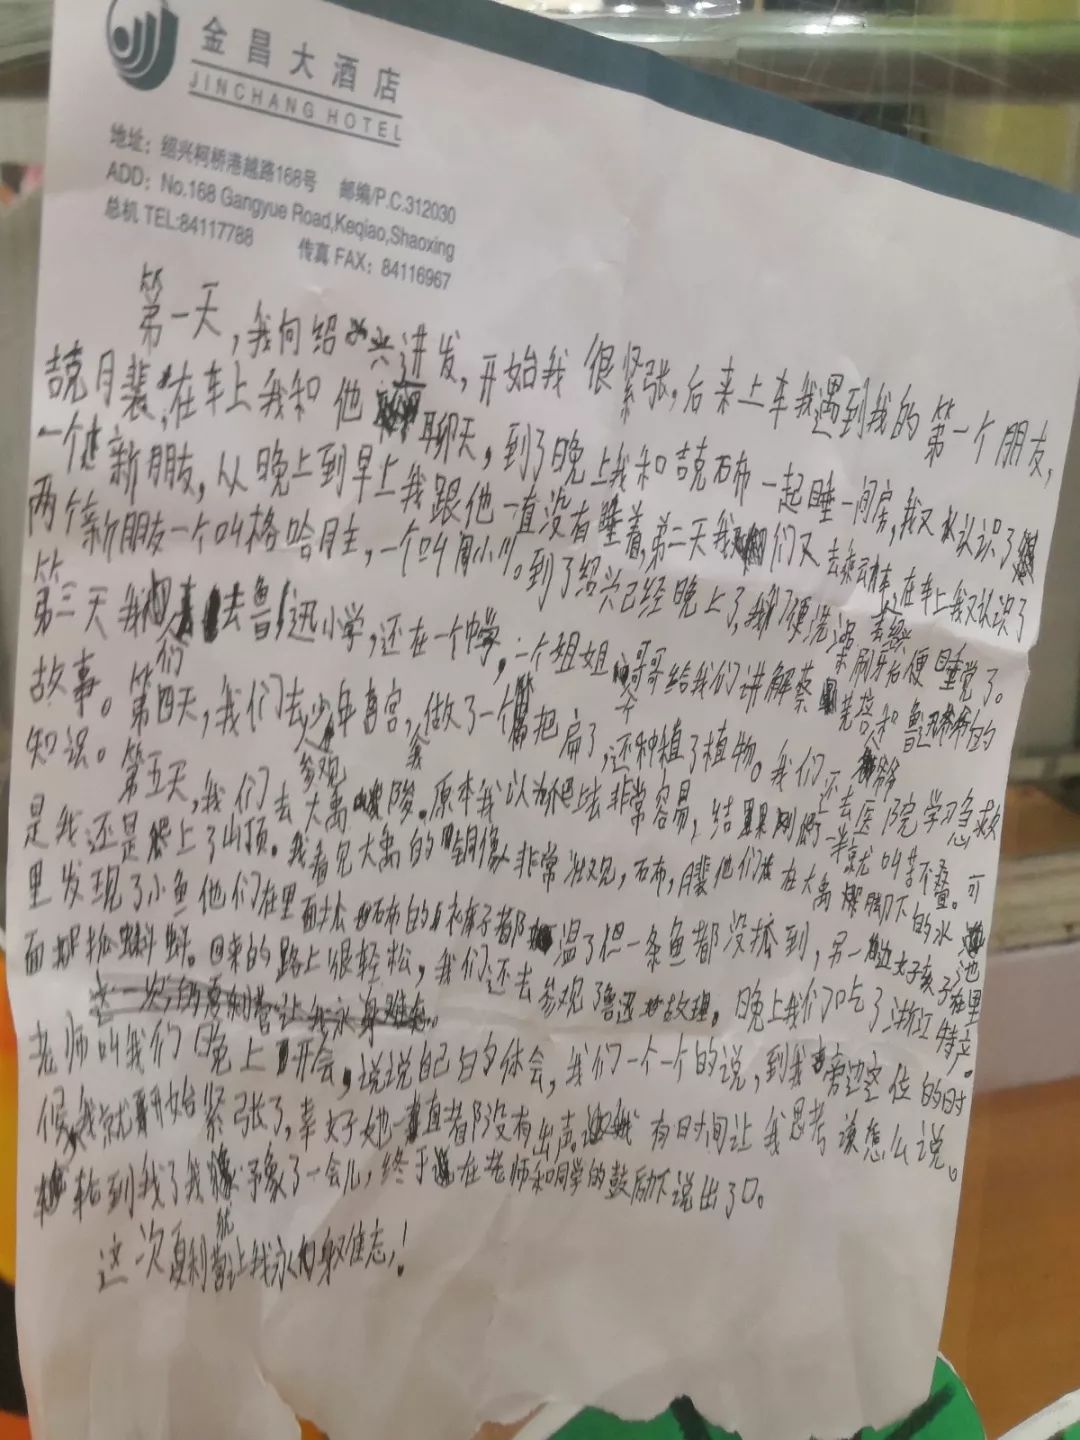 金昌大酒店
JINCHANG HOTEL
地址：绍兴柯桥港越路168号 邮编/P.C.312030
ADD：No.168 Gangyue Road,Keqiao,Shaoxing
总机 TEL:84117788 传真 FAX：84116967
第一天，我向绍兴进发，开始我很紧张，后来上车我遇到我的第一个朋友，
吉克月裴，在车上我和他聊天，到了晚上我和吉克石布一起睡一间房，我又认识了
一个新朋友，从晚上到早上我跟他一直没有睡着，第二天我们又去乘动车，在车上我又认识了
两个新朋友一个叫格哈月主，一个叫周小川。到了绍兴已经晚上了，我们便洗澡刷牙后便睡觉了。
第三天我们去鲁迅小学，还在一个中学，一个姐姐哥哥给我们讲解蔡元培和鲁迅的
故事。第四天，我们去少年宫，做了一个把扁了，还种植了植物。我们还去医院学习急救
知识。第五天，我们去参观大禹陵。原本我以为爬上去非常容易，结果刚爬一半就叫苦不叠。可
是我还是爬上了山顶。我看见大禹的铜像非常壮观，石布，月裴他们在大禹脚下的水池
里发现了小鱼他们在里面 石布的衣裤子都温了但一条鱼都没抓到，另一边女孩子在里
面抓蝌蚪。回来的路上很轻松，我们还去参观了鲁迅故理。晚上我们吃了浙江特产。
老师叫我们晚上开会，说说自己白夕体会，我们一个一个的说，到我旁边空位的时
候，我就开始紧张了，幸好她一直都没有出声 有时间让我思考该怎么说。
轮到我了我予象了一会儿，终于在老师和同学的鼓励下说出了口。
这一次夏利营就让我永身难忘！